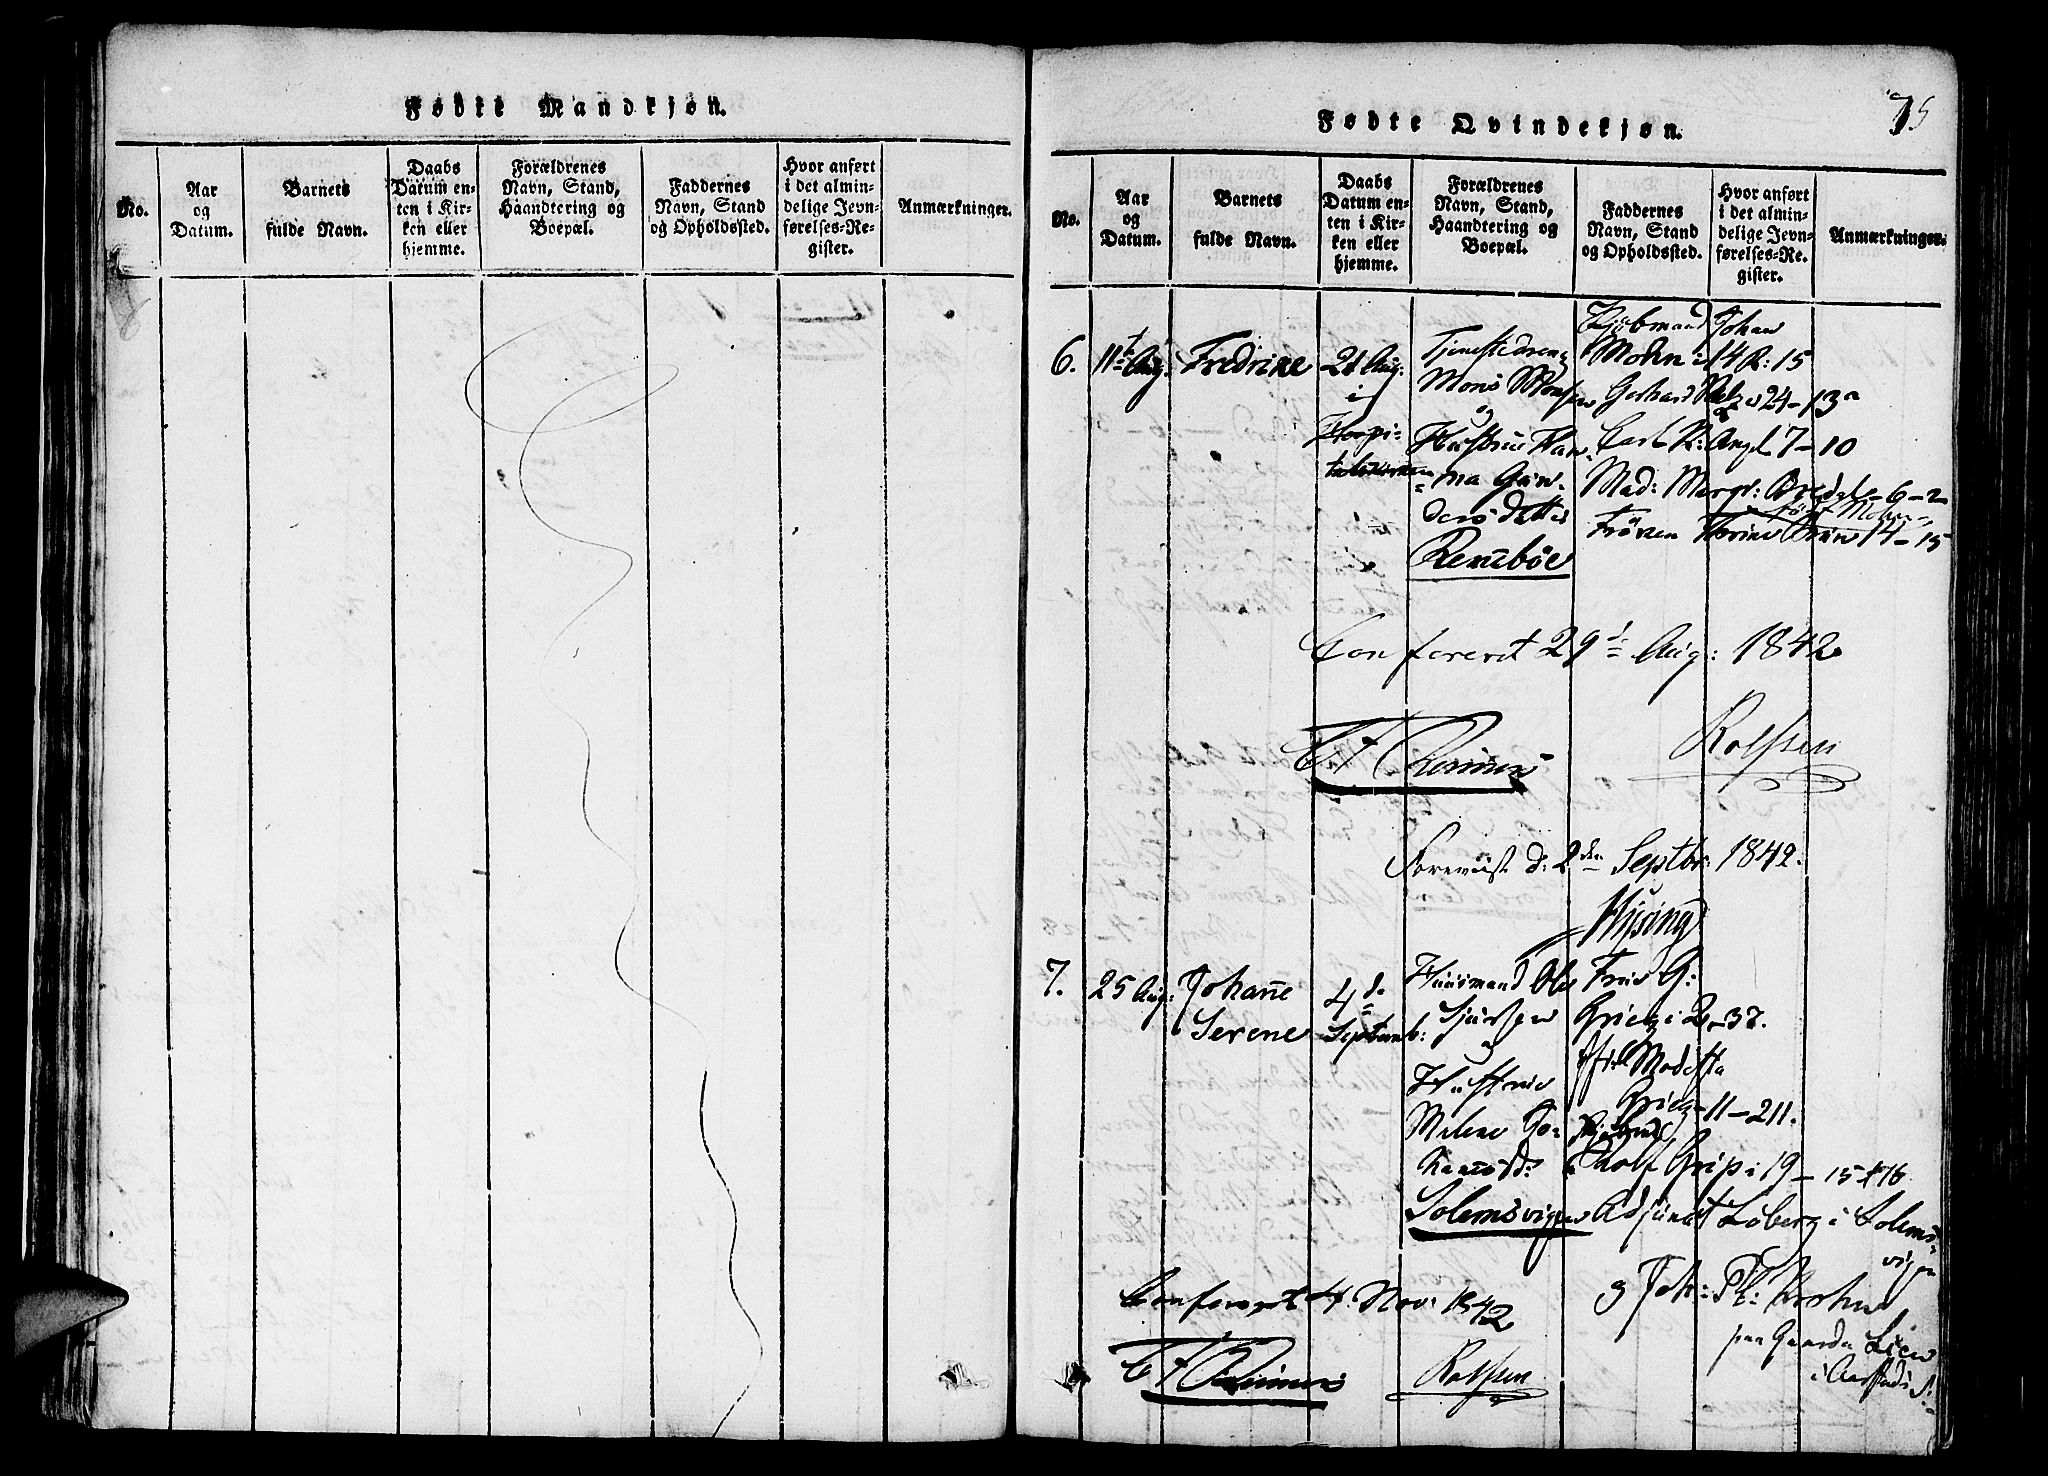 Fødte Mandkjøn.
No.
Aar
og
Datum.
Barnets
fulde Navn.
Daabs
Datum en-
ten i Kir-
ken eller
hjemme.
Forældrenes
Navn, Stand,
Haandtering og
Boepæl.
Faddernes
Navn, Stand
og Opholdssted.
Hvor anført
i det almin-
delige Jevn-
førelses-Re-
gister.
Anmærkninger.
75
Fødte Qvindekjøn.
No.
Aar
og
Datum.
Barnets
fulde Navn.
Daabs
Datum en-
ten i Kir-
ken eller
hjemme.
Forældrenes
Navn, Stand,
Haandtering og
Boepæl.
Faddernes
Navn, Stand
og Opholdssted.
Hvor anført
i det almin-
delige Jevn-
førelses-Re-
gister.
Anmærkninger.
6.
11te Aug:
Fredrine
21 Aug:
i
Hospi-
Tjenestedreng
Mons Monsen
og
Hustrue Han-
na Gun-
dersdatter
Kjøbmand Johan
Mohn i 14 R: 15
Gerhard 24 - 13
Carl 7 - 10
Mad: Margr: 6 - 2
Frøken 14 - 15
Confereret 29d Aug: 1842
Rolfsen
Foreviist d: 2den Septbr: 1842.
Hysing
7.
25 Aug:
Johanne
Serene
4d
Septemb:
Huusmand Ole
Sjursen
og
Hustrue
Milene Jo-
hannsd:
Solemsvigen
Frue G:
Grieg i 2 - 37.
Modesta
Grieg - 11 - 211.
Rolf Grip i 19 - 15
Adjunct Loberg i Solems-
vigen
g Joh: Krohn
paa Gaarden
i
Confereret 4. Nov: 1842
Rolfsen